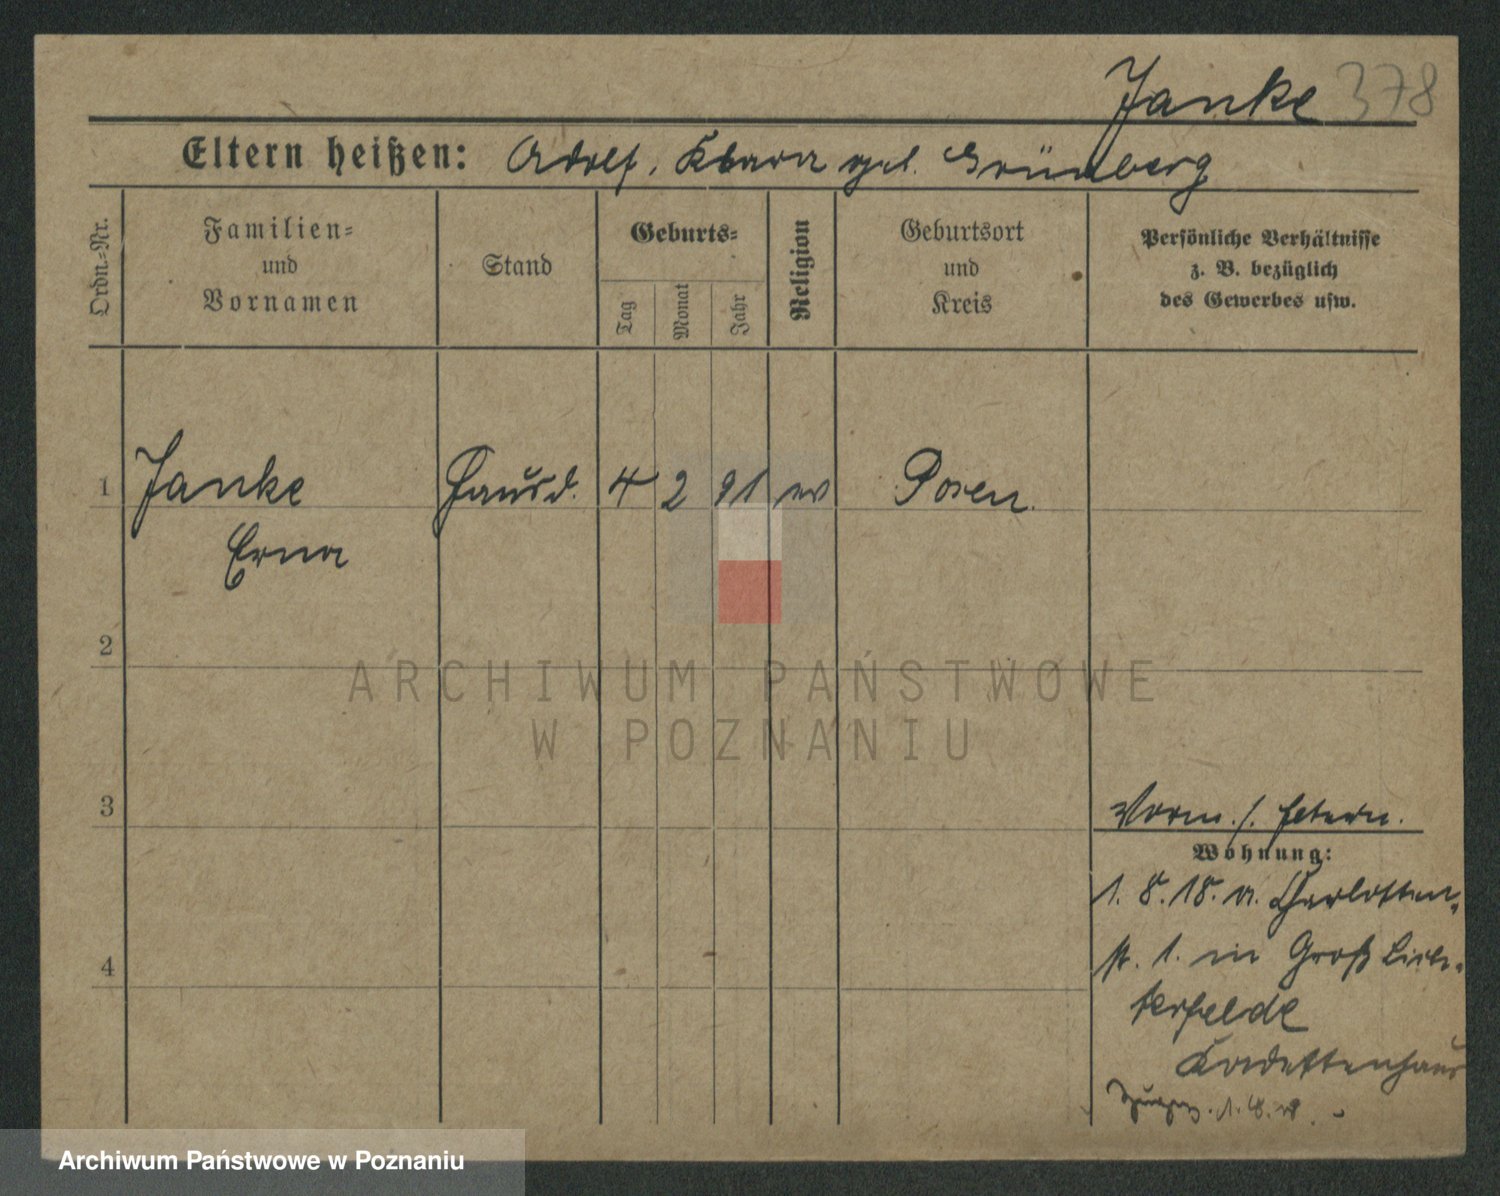 Janke 378
Eltern heißen: Adolf, Klara geb. Grünberg
Ordn.-Nr.
Familien-
und
Vornamen
Stand
Geburts-
Tag
Monat
Jahr
Religion
Geburtsort
und
Kreis
Persönliche Verhältnisse
z. B. bezüglich
des Gewerbes usw.
1 Janke Haust. 4 2 91 ev Posen.
Erna
2
ARCHIWUM PAŃSTWOWE
W POZNANIU
3
Vorm. s. Eltern.
Wohnung:
1. 8. 18. a. Charlotten-
4
str. 1. in Groß Lich-
terfelde
Kadettenhaus
Archiwum Państwowe w Poznaniu